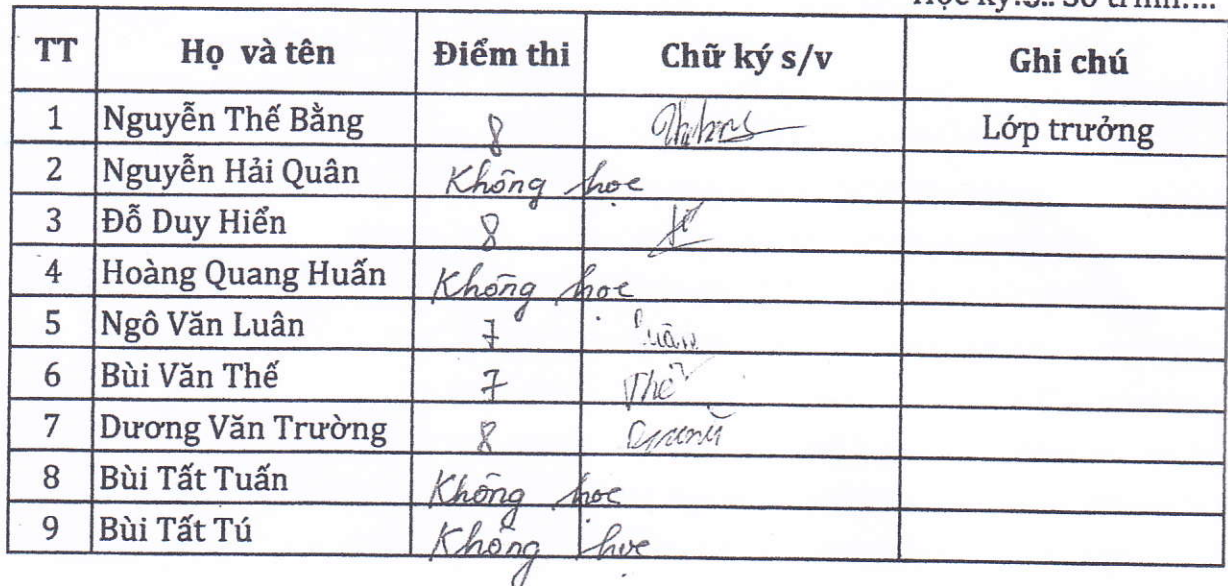 Học kỳ:3.. Số trình:...
TT Họ và tên Điểm thi Chữ ký s/v Ghi chú
1 Nguyễn Thế Bằng 8 Lớp trưởng
2 Nguyễn Hải Quân Không học
3 Đỗ Duy Hiển 8
4 Hoàng Quang Huấn Không học
5 Ngô Văn Luân 7 Luân
6 Bùi Văn Thế 7 Thế
7 Dương Văn Trường 8
8 Bùi Tất Tuấn Không học
9 Bùi Tất Tú Không học